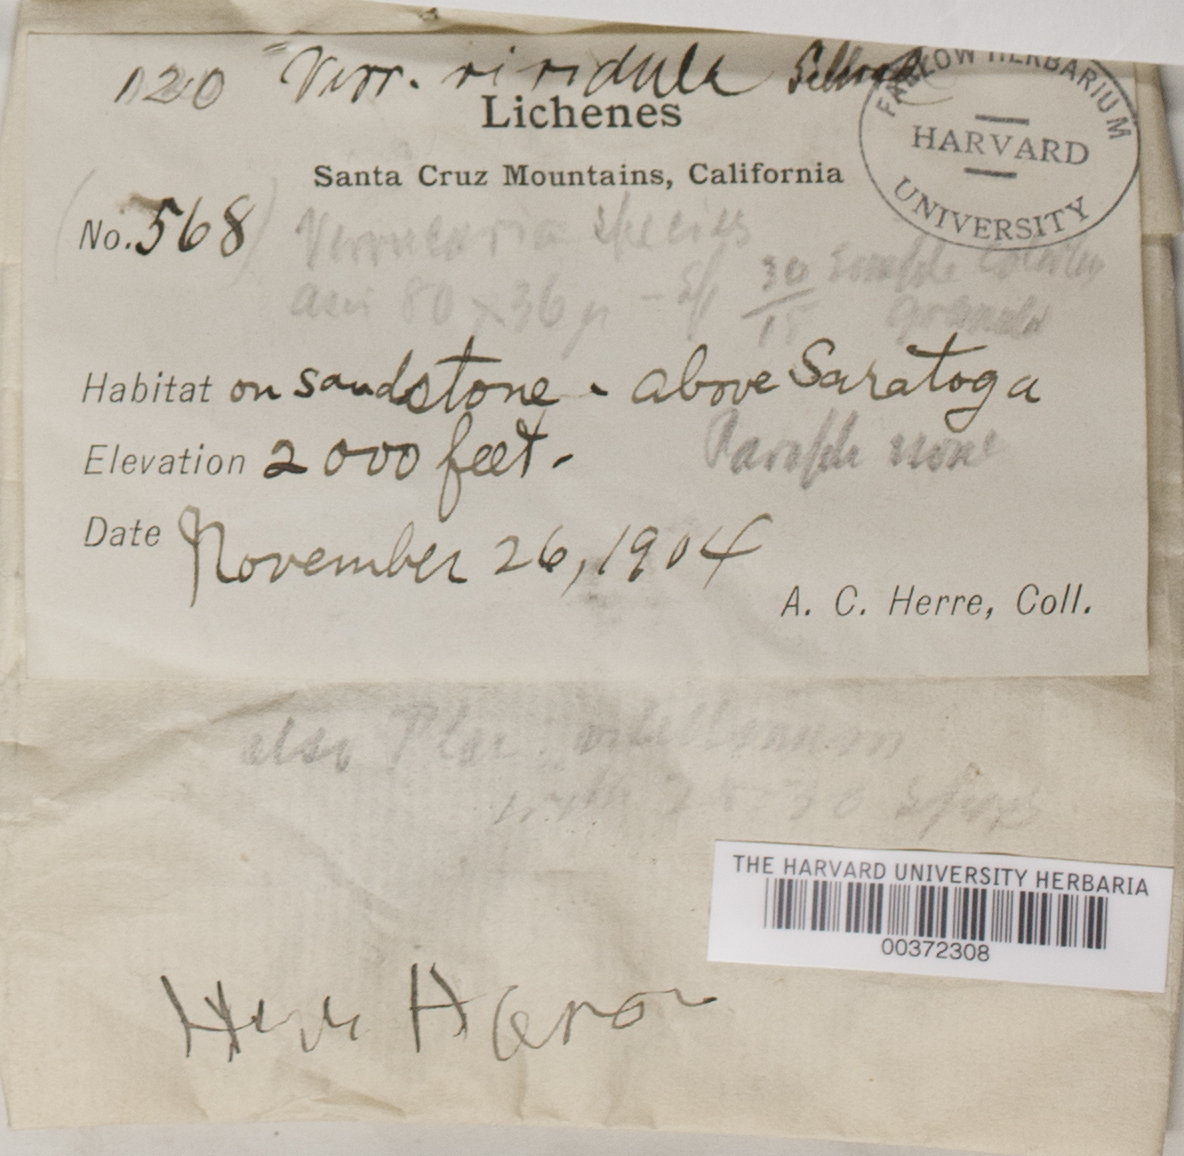 120 Verr. viridula
Lichenes
Santa Cruz Mountains, California
FARLOW HERBARIUM
HARVARD
UNIVERSITY
No. 568
Verrucaria species
80 x 36 µ 30
Habitat on sandstone - above Saratoga
Elevation 2000 feet.
none
Date November 26, 1904
A. C. Herre, Coll.
also Plac.
with
THE HARVARD UNIVERSITY HERBARIA
00372308
Herb